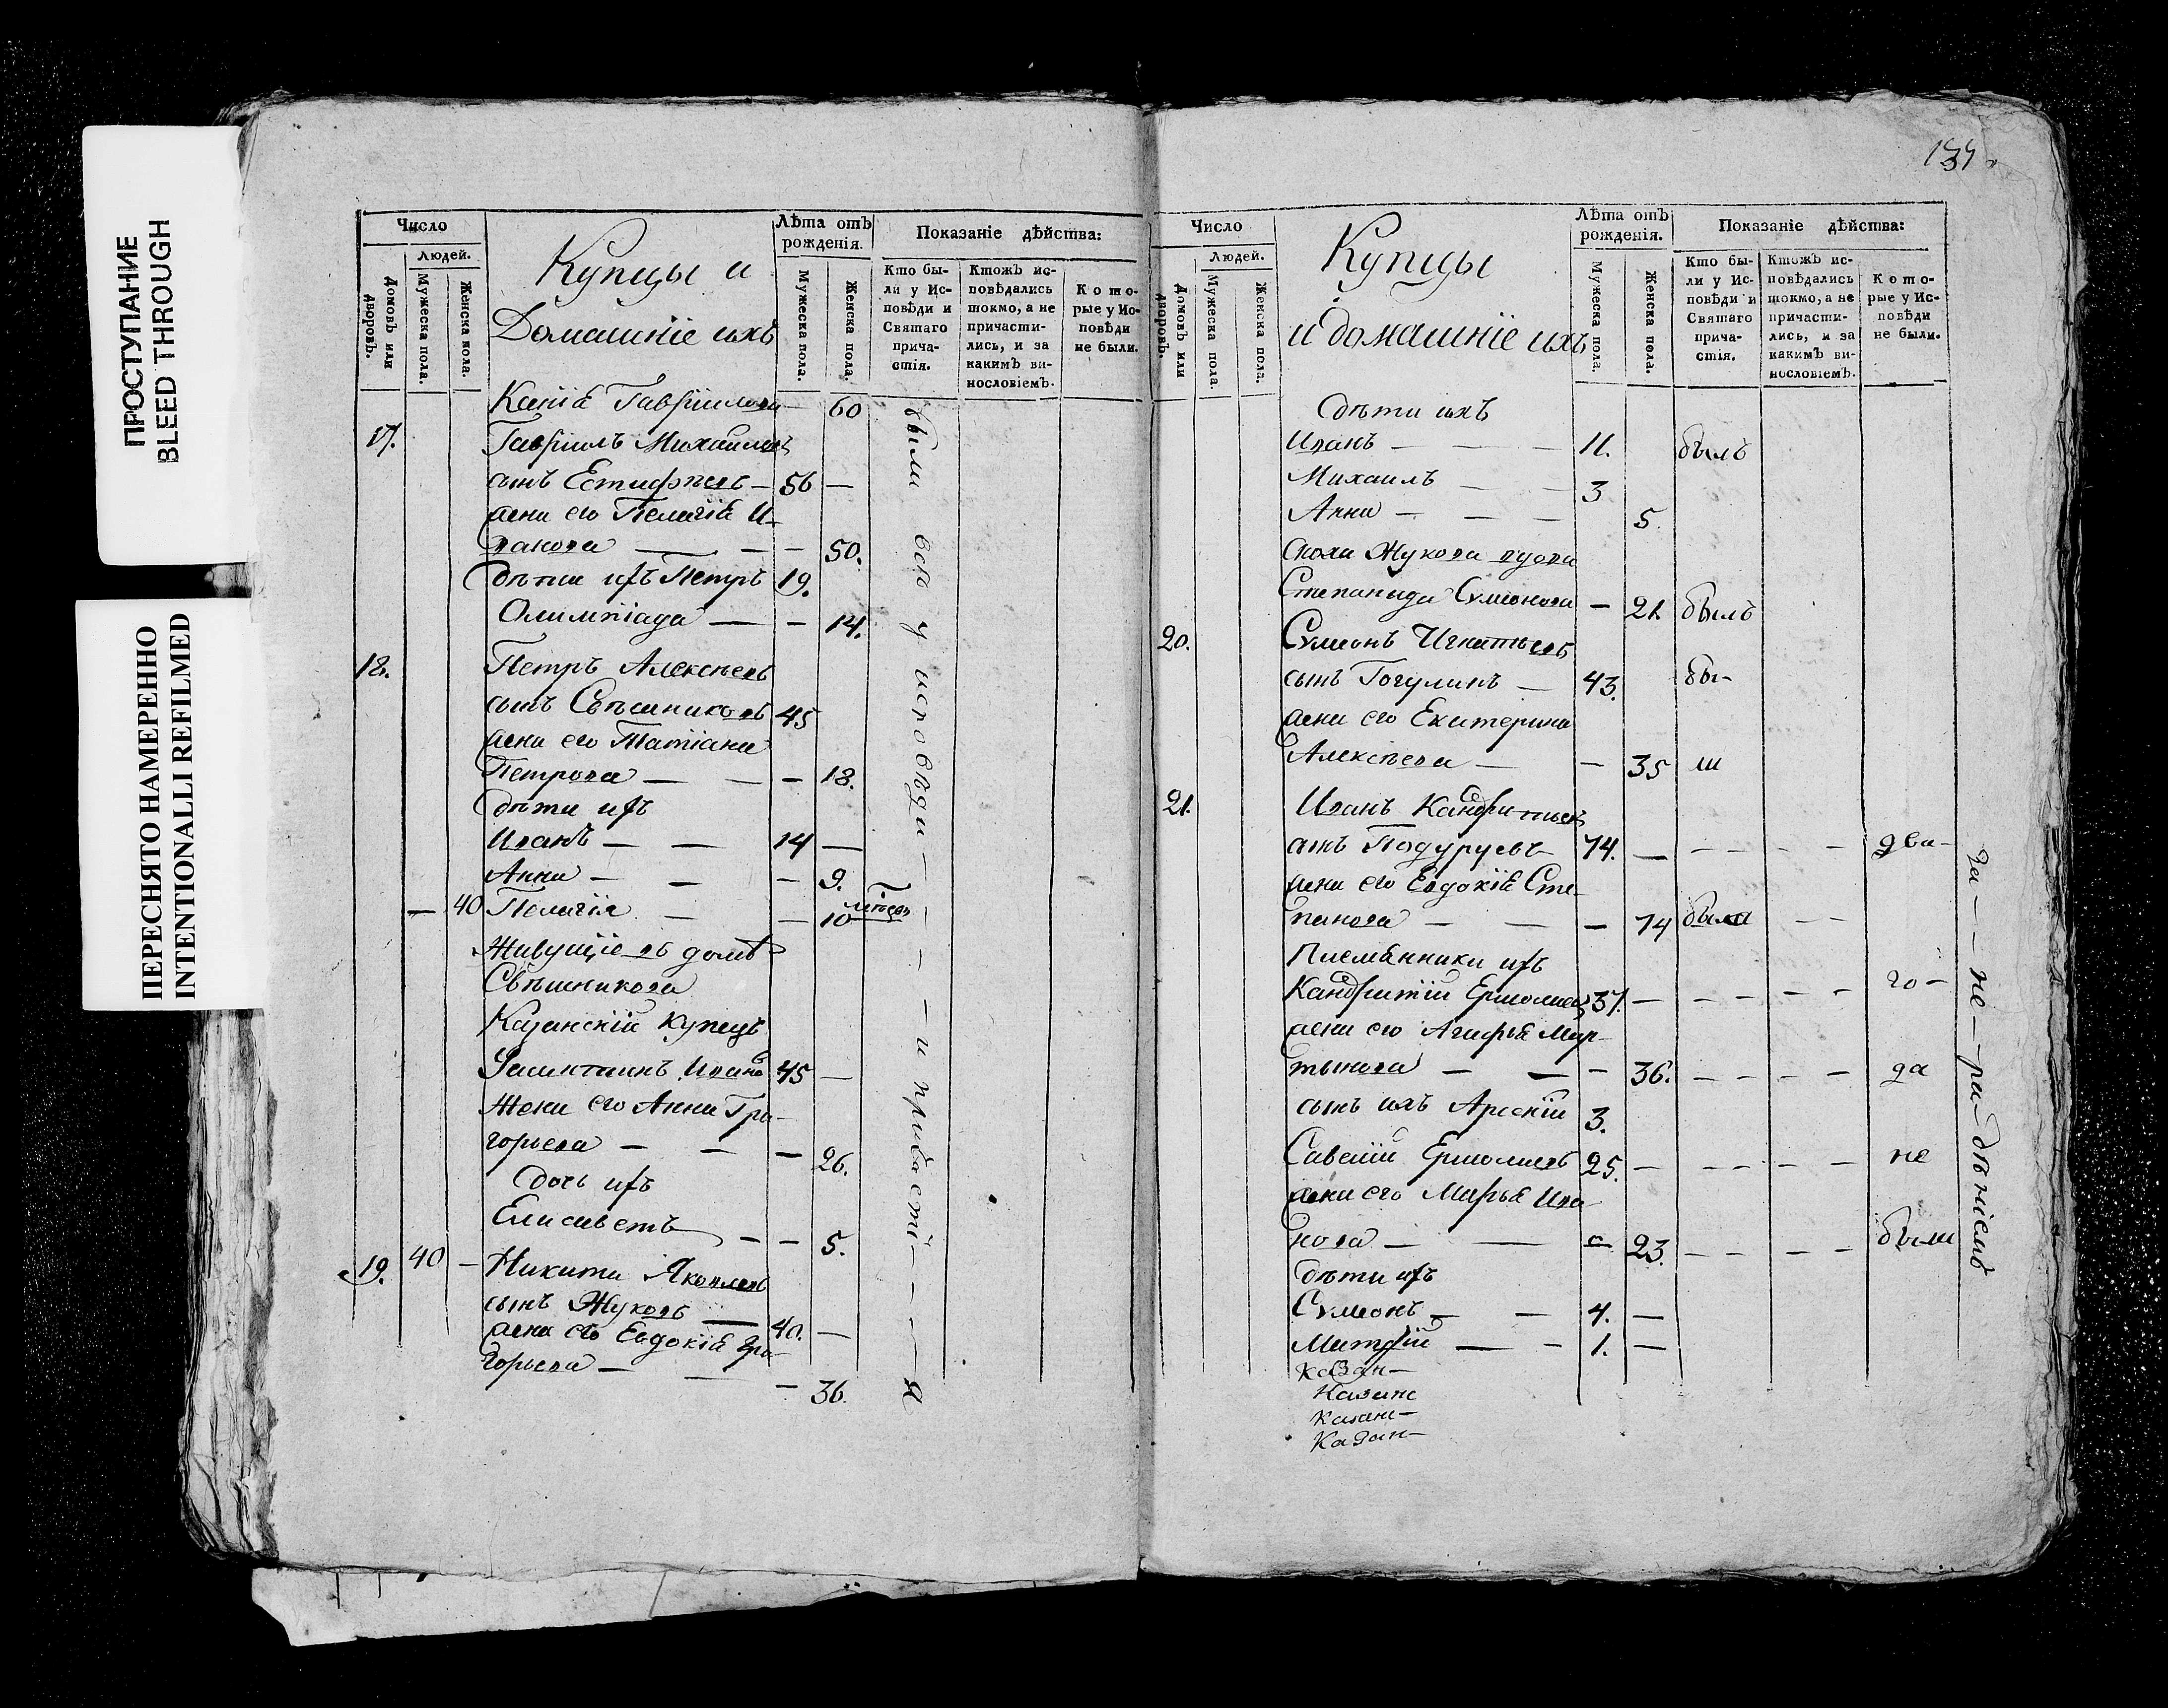 ПРОСТУПАНИЕ
BLEED THROUGH
ПЕРЕСНЯТО НАМЕРЕННО
INTENTIONALLI REFILMED
Число
Людей.
Домовъ или дворовъ.
Мужеска пола.
Женска пола.
Купцы и
Домашніе ихъ
Лѣта отъ рожденія.
Мужеска пола.
Женска пола.
Показаніе дѣйства:
Кто были у Исповѣди и Святаго причастія.
Ктожъ исповѣдались токмо, а не причастились, и за какимъ винословіемъ.
Которые у Исповѣди не были.
Гаврилова — 60
17. Гаврилъ Михаиловъ
сынъ Естифѣевъ — 56 —
жена его Пелагія И-
ванова — — — 50.
дѣти ихъ Петръ 19.
Олимпіада — — 14.
18. Петръ Алексѣевъ
сынъ Свѣшниковъ 45
жена его Татіана
Петрова — — — 18.
дѣти ихъ
Иванъ — — 14 —
Анна — — — 9.
— 40 Пелагія — — 10 мѣсец
Живущіе въ домѣ
Свѣшникова
Казанскій купецъ
Иванов 45 —
Жена его Анна Гри-
горьева — — — 26.
дочь ихъ
Елисаветъ — — 5.
19. 40 — Никита Яковлевъ
сынъ Жуковъ — 40. —
жена его Евдокія Гри-
горьева — — — 36.
были всѣ у исповѣди — — — — и причасті — — — я
134
Число
Людей.
Домовъ или дворовъ.
Мужеска пола.
Женска пола.
Купцы
и домашніе ихъ
Лѣта отъ рожденія.
Мужеска пола.
Женска пола.
Показаніе дѣйства:
Кто были у Исповѣди и Святаго причастія.
Ктожъ исповѣдались токмо, а не причастились, и за какимъ винословіемъ.
Которые у Исповѣди не были.
дѣти ихъ
Иванъ — — — 11. былъ
Михаилъ — — 3
Анна — — — 5.
Жукова вдова
Степанида Сумеонова — 21. былъ
20. Сумеонъ Игнатьевъ
сынъ Гогулинъ — 43. бы-
жена его Екатерина
Алексѣева — — 35 ли
21. Иванъ Кандратьевъ
сынъ Подуруевъ 74. — — — — — два-
жена его Евдокія Сте-
панова — — — 74 была — —
Племянники ихъ
Кандратій Ермолаев 37. — — — — — го-
жена его Агафья Мар-
тынова — — — 36. — — — — да
сынъ ихъ Арсеній 3.
Савелій Ермолаевъ 25. — — — — — не
жена его Марья Ива-
нова — — — 23. — — — — были
дѣти ихъ
Сумеонъ — — 4. —
Митрій — — 1. —
Казан-
Казанс
Казанс-
Казан-
за — — не — ра — дѣніемъ